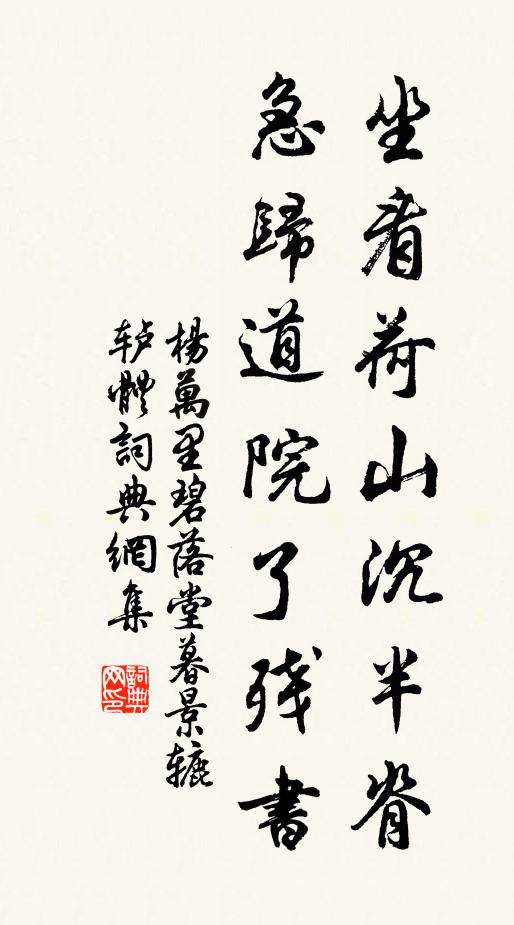 坐看荷山沉半脊
急歸道院了残書
楊萬里碧落堂暮景辘
轳體詞典網集
詞典
网印